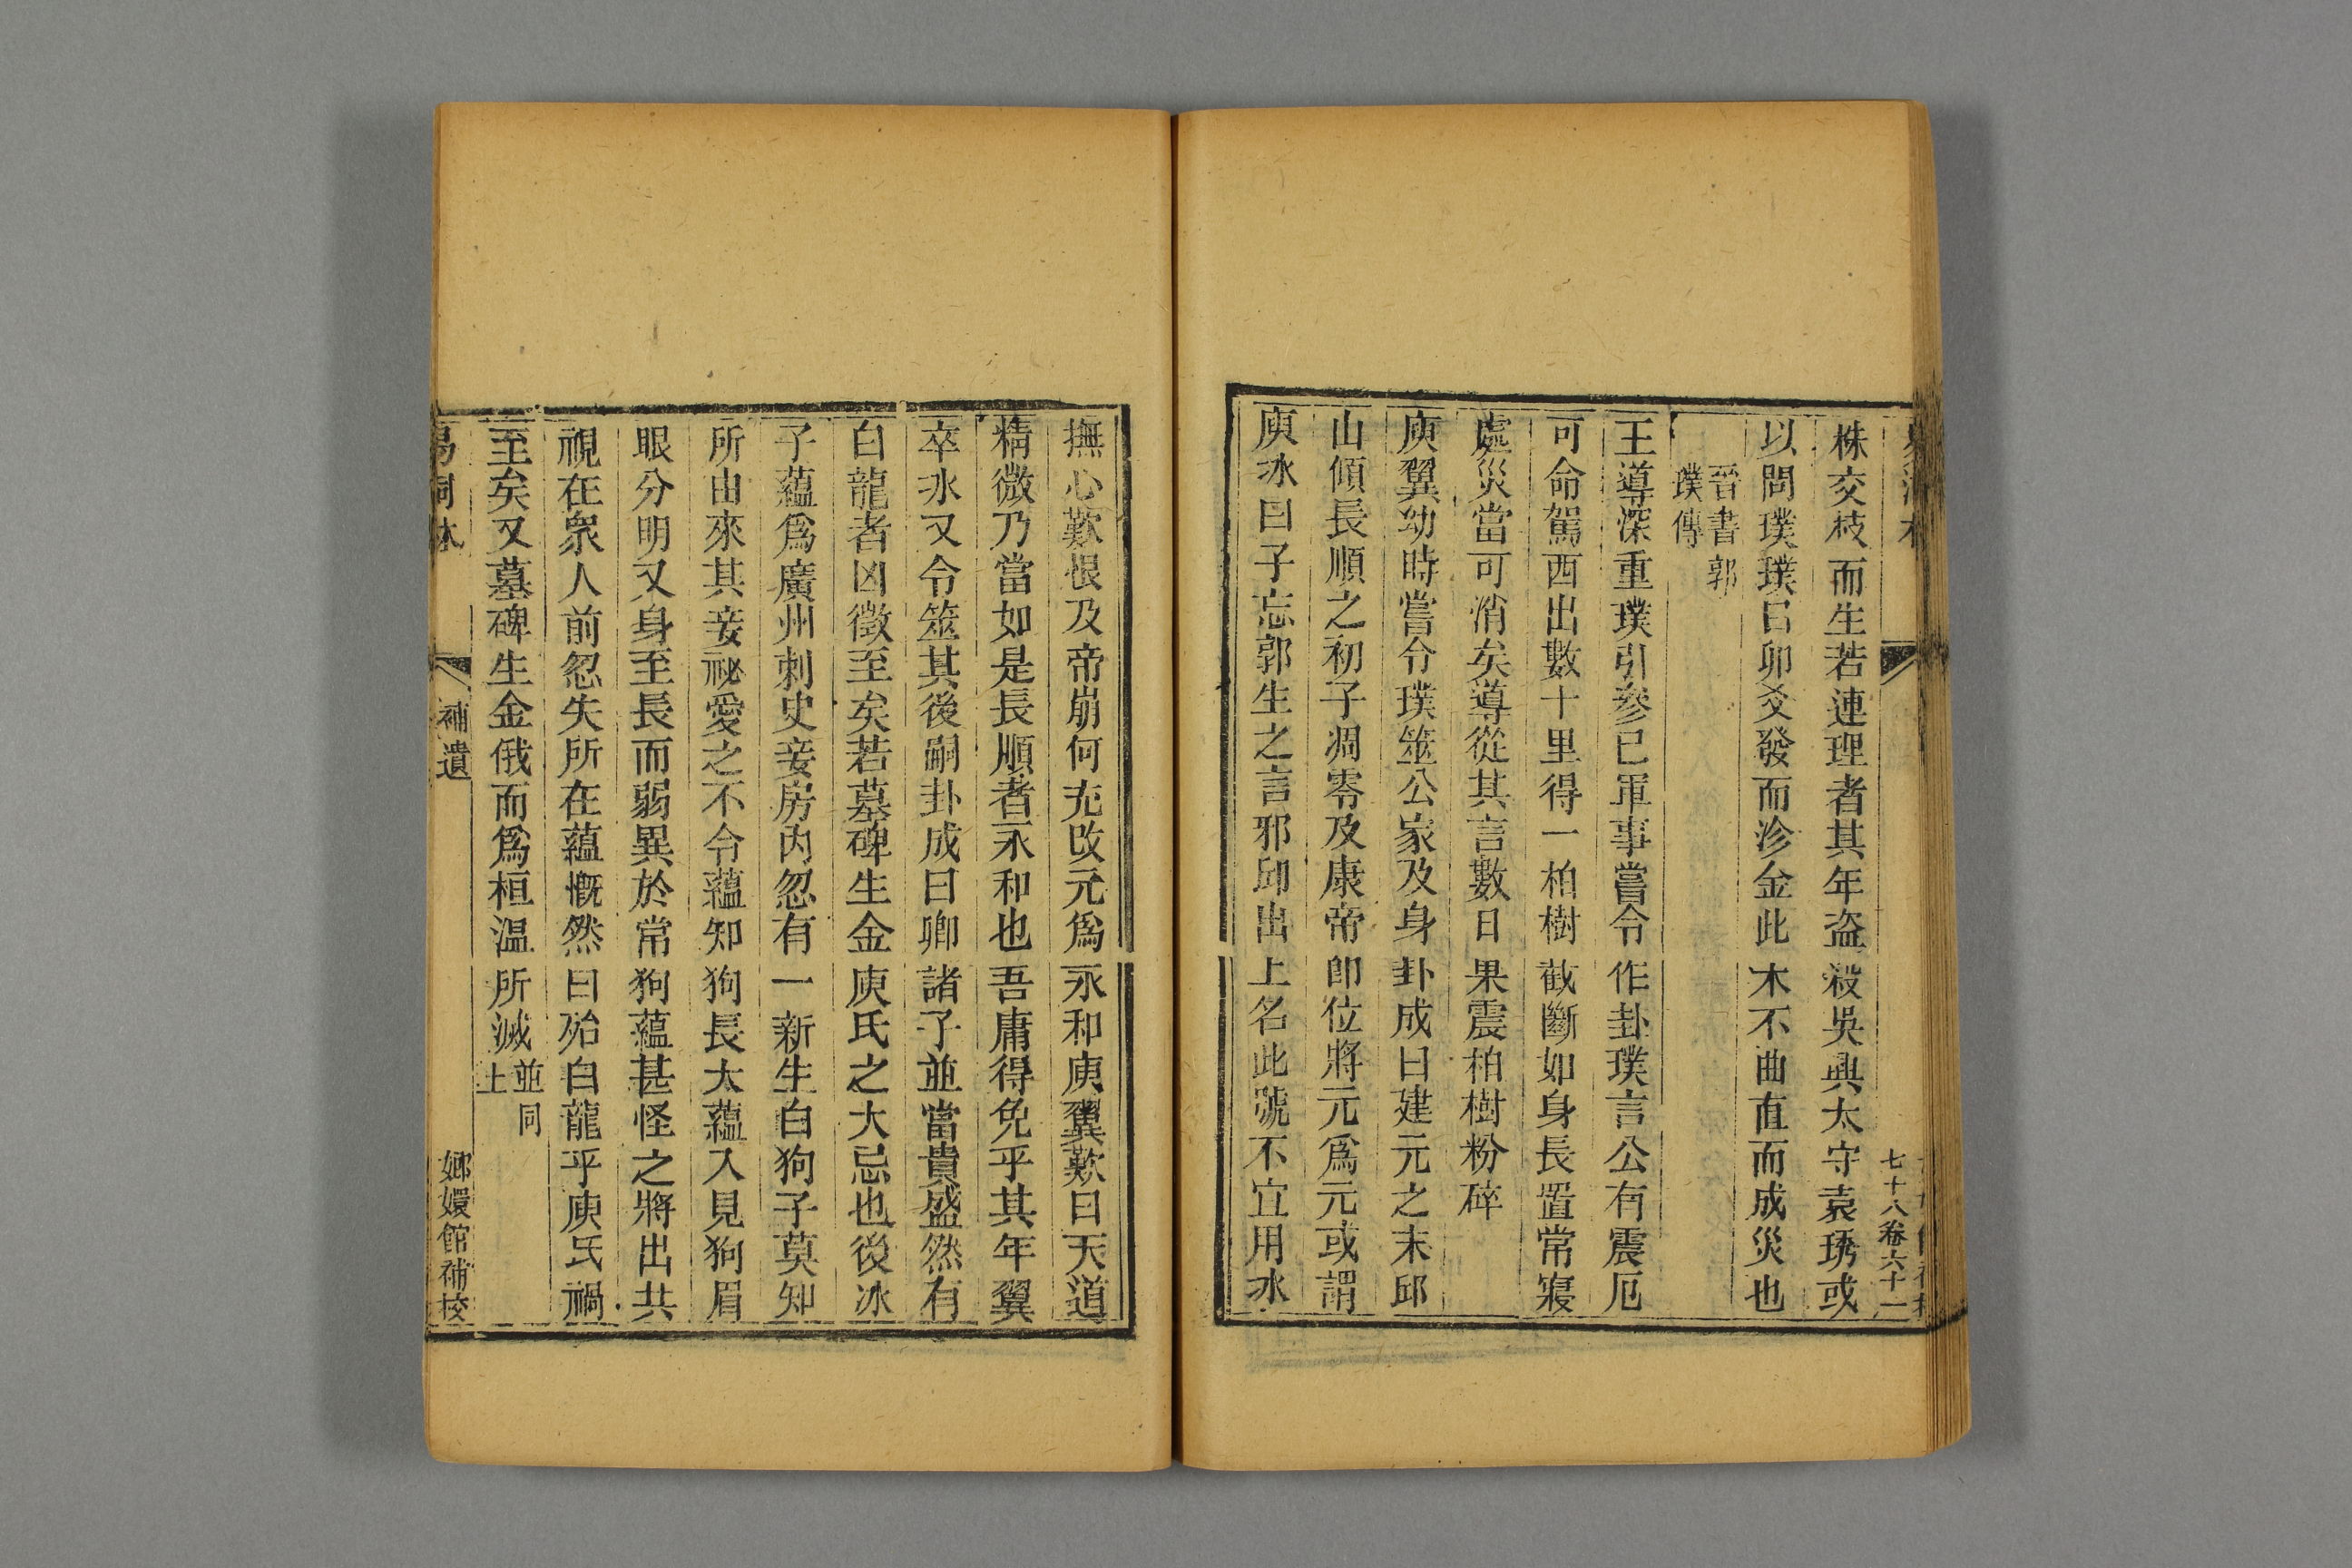 七十八卷六十一
株交枝而生若連理者其年盜殺吳興太守袁琇或
以問璞璞曰卯爻發而沴金此木不曲直而成災也
晉書郭
璞傳
王導深重璞引參已軍事嘗令作卦璞言公有震厄
可命駕西出數十里得一柏樹截斷如身長置常寢
處災當可消矣導從其言數日果震柏樹粉碎
庾翼幼時嘗令璞筮公家及身卦成曰建元之末邱
山傾長順之初子凋零及康帝卽位將元爲元或謂
庾冰曰子忘郭生之言邪邱出上名此號不宜用冰
撫心歎恨及帝崩何充改元爲永和庾翼歎曰天道
精微乃當如是長順者永和也吾庸得免乎其年翼
卒冰又令筮其後嗣卦成曰卿諸子並當貴盛然有
白龍者凶徵至矣若墓碑生金庾氏之大忌也後冰
子蘊爲廣州刺史妾房內忽有一新生白狗子莫知
所由來其妾祕愛之不令蘊知狗長大蘊入見狗眉
眼分明又身至長而弱異於常狗蘊甚怪之將出共
視在衆人前忽失所在蘊慨然曰殆白龍乎庾氏禍
至矣又墓碑生金俄而爲桓温所滅並同
上
易洞林 補遺 嫏嬛館補校